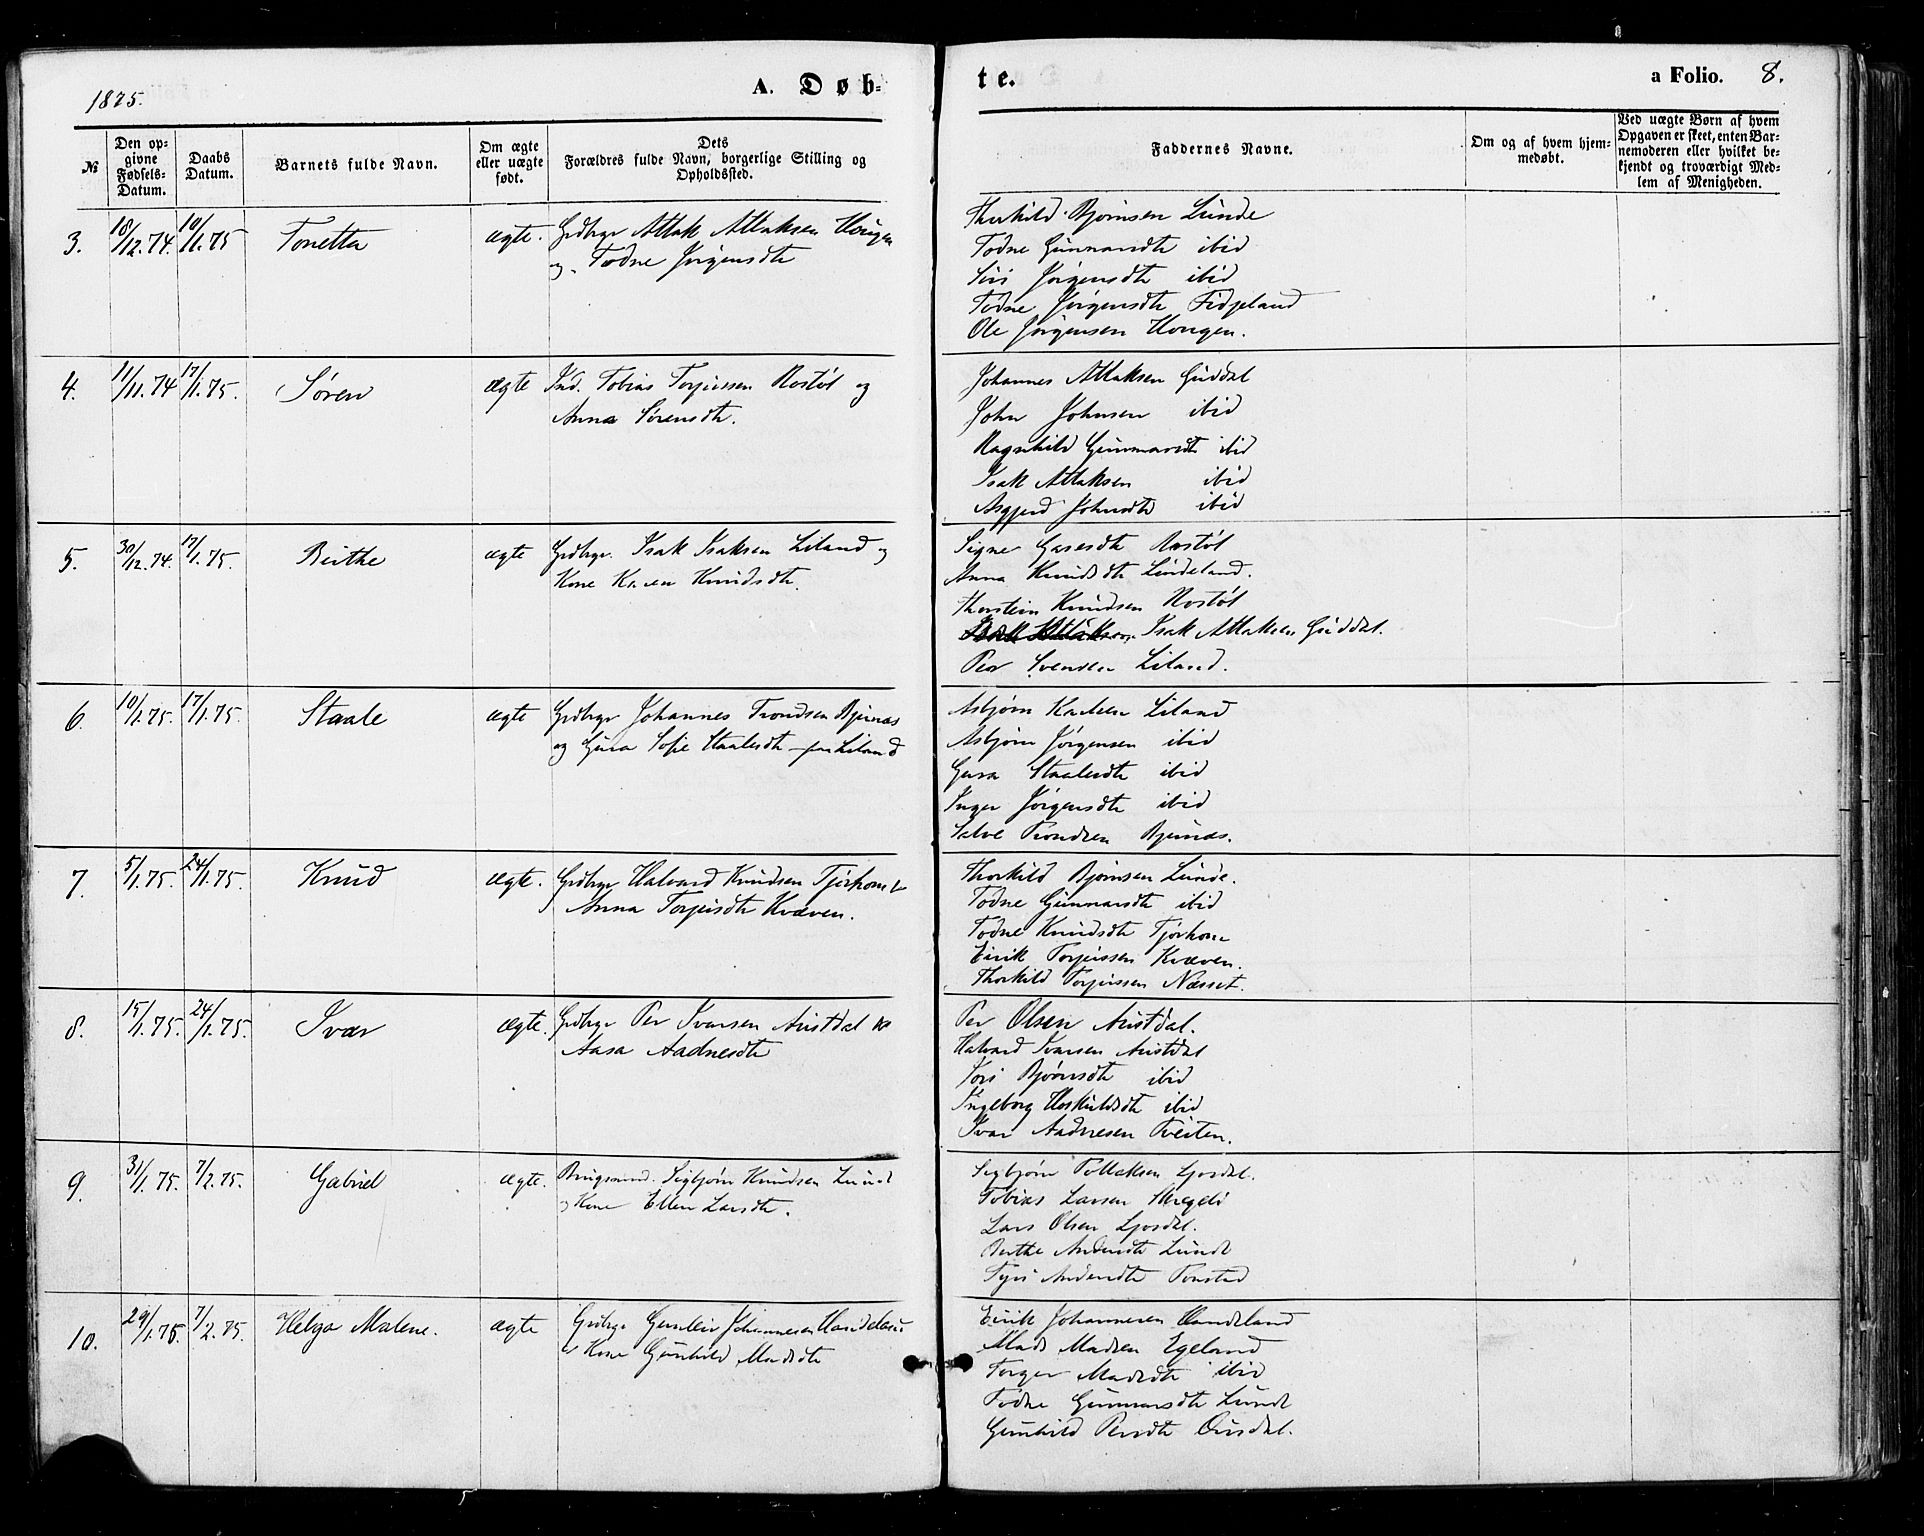 1875.
A. Døb-
te.
a Folio. 8.
№
Den op-
givne
Fødsels-
Datum.
Daabs
Datum.
Barnets fulde Navn.
Om ægte
eller uægte
født.
Dets
Forældres fulde Navn, borgerlige Stilling og
Opholdssted.
Faddernes Navne.
Om og af hvem hjem-
medøbt.
Ved uægte Børn af hvem
Opgaven er skeet, enten Bar-
nemoderen eller hvilket be-
kjendt og troværdigt Med-
lem af Menigheden.
3. 10/12.74. 10/1.75 Tonetta ægte. Grdbrgr Atlak Atlaksen Hougen
og Todne Jørgensdtr
Thorkild Bjørnsen Lunde
Todne Gunnarsdtr ibid
Siri Jørgensdtr ibid
Todne Jørgensdtr Fidjeland
Ole Jørgensen Hougen.
4. 11/11.74 17/1.75. Søren ægte Ind. Tobias Torjussen Rostøl og
Anna Sørensdtr.
Johannes Atlaksen Guddal
John Johnsen ibid
Ragnhild Gunnarsdtr ibid
Isak Atlaksen ibid
Asgjerd Johnsdtr ibid
5. 30/12.74. 17/1.75. Birthe ægte Grdbrgr. Isak Isaksen Liland og
Kone Karen Knudsdtr.
Signe Gasesdtr Rostøl
Anna Knudsdtr Lindeland.
Thorstein Knudsen Rostøl
Isak Atlaksen Guddal.
Per Svendsen Liland.
6. 10/1.75. 17/1.75. Staale ægte Grdbrgr Johannes Trondsen Bjunas
og Gura Sofie Staalesdtr fra Liland
Asbjørn Karlsen Liland
Asbjørn Jørgensen ibid
Gura Staalesdtr ibid
Inger Jørgensdtr ibid
Salve Trondsen Bjunas.
7. 5/1.75. 24/1.75. Knud ægte. Grdbrgr Halvard Knudsen Tjørhom &
Anna Torjusdtr Kvæven.
Thorkild Bjørnsen Lunde.
Todne Gunnarsdtr ibid
Todne Knudsdtr Tjørhom
Eirik Torjussen Kvæven.
Thorkild Torjussen Næsset.
8. 15/1.75. 24/1.75. Ivar ægte. Grdbrgr Per Ivarsen Austdal &
Aasa Aadnesdtr
Per Olsen Austdal.
Halvard Ivarsen Austdal
Siri Bjørnsdtr ibid
Ingeborg Hoskuldsdtr ibid
Ivar Aadnesen Tveiten.
9. 31/1.75. 7/2.75. Gabriel ægte. Brugsmand. Sigbjørn Knudsen Lunde
og Kone Ellen Larsdtr.
Sigbjørn Tollaksen Ljosdal.
Tobias Larsen Skregeli
Lars Olsen Ljosdal.
Berthe Andersdtr Lunde
Siri Andersdtr Tonstad
10. 29/1.75. 7/2.75. Helga Malene. ægte Grdbrgr Gunleiv Johannesen Haudeland
& Kone Gunhild Madsdtr
Eirik Johannesen Haudeland
Mads Madsen Egeland
Torger Madsdtr ibid
Todne Gunnarsdtr Lunde
Gunhild Persdtr Ousdal.